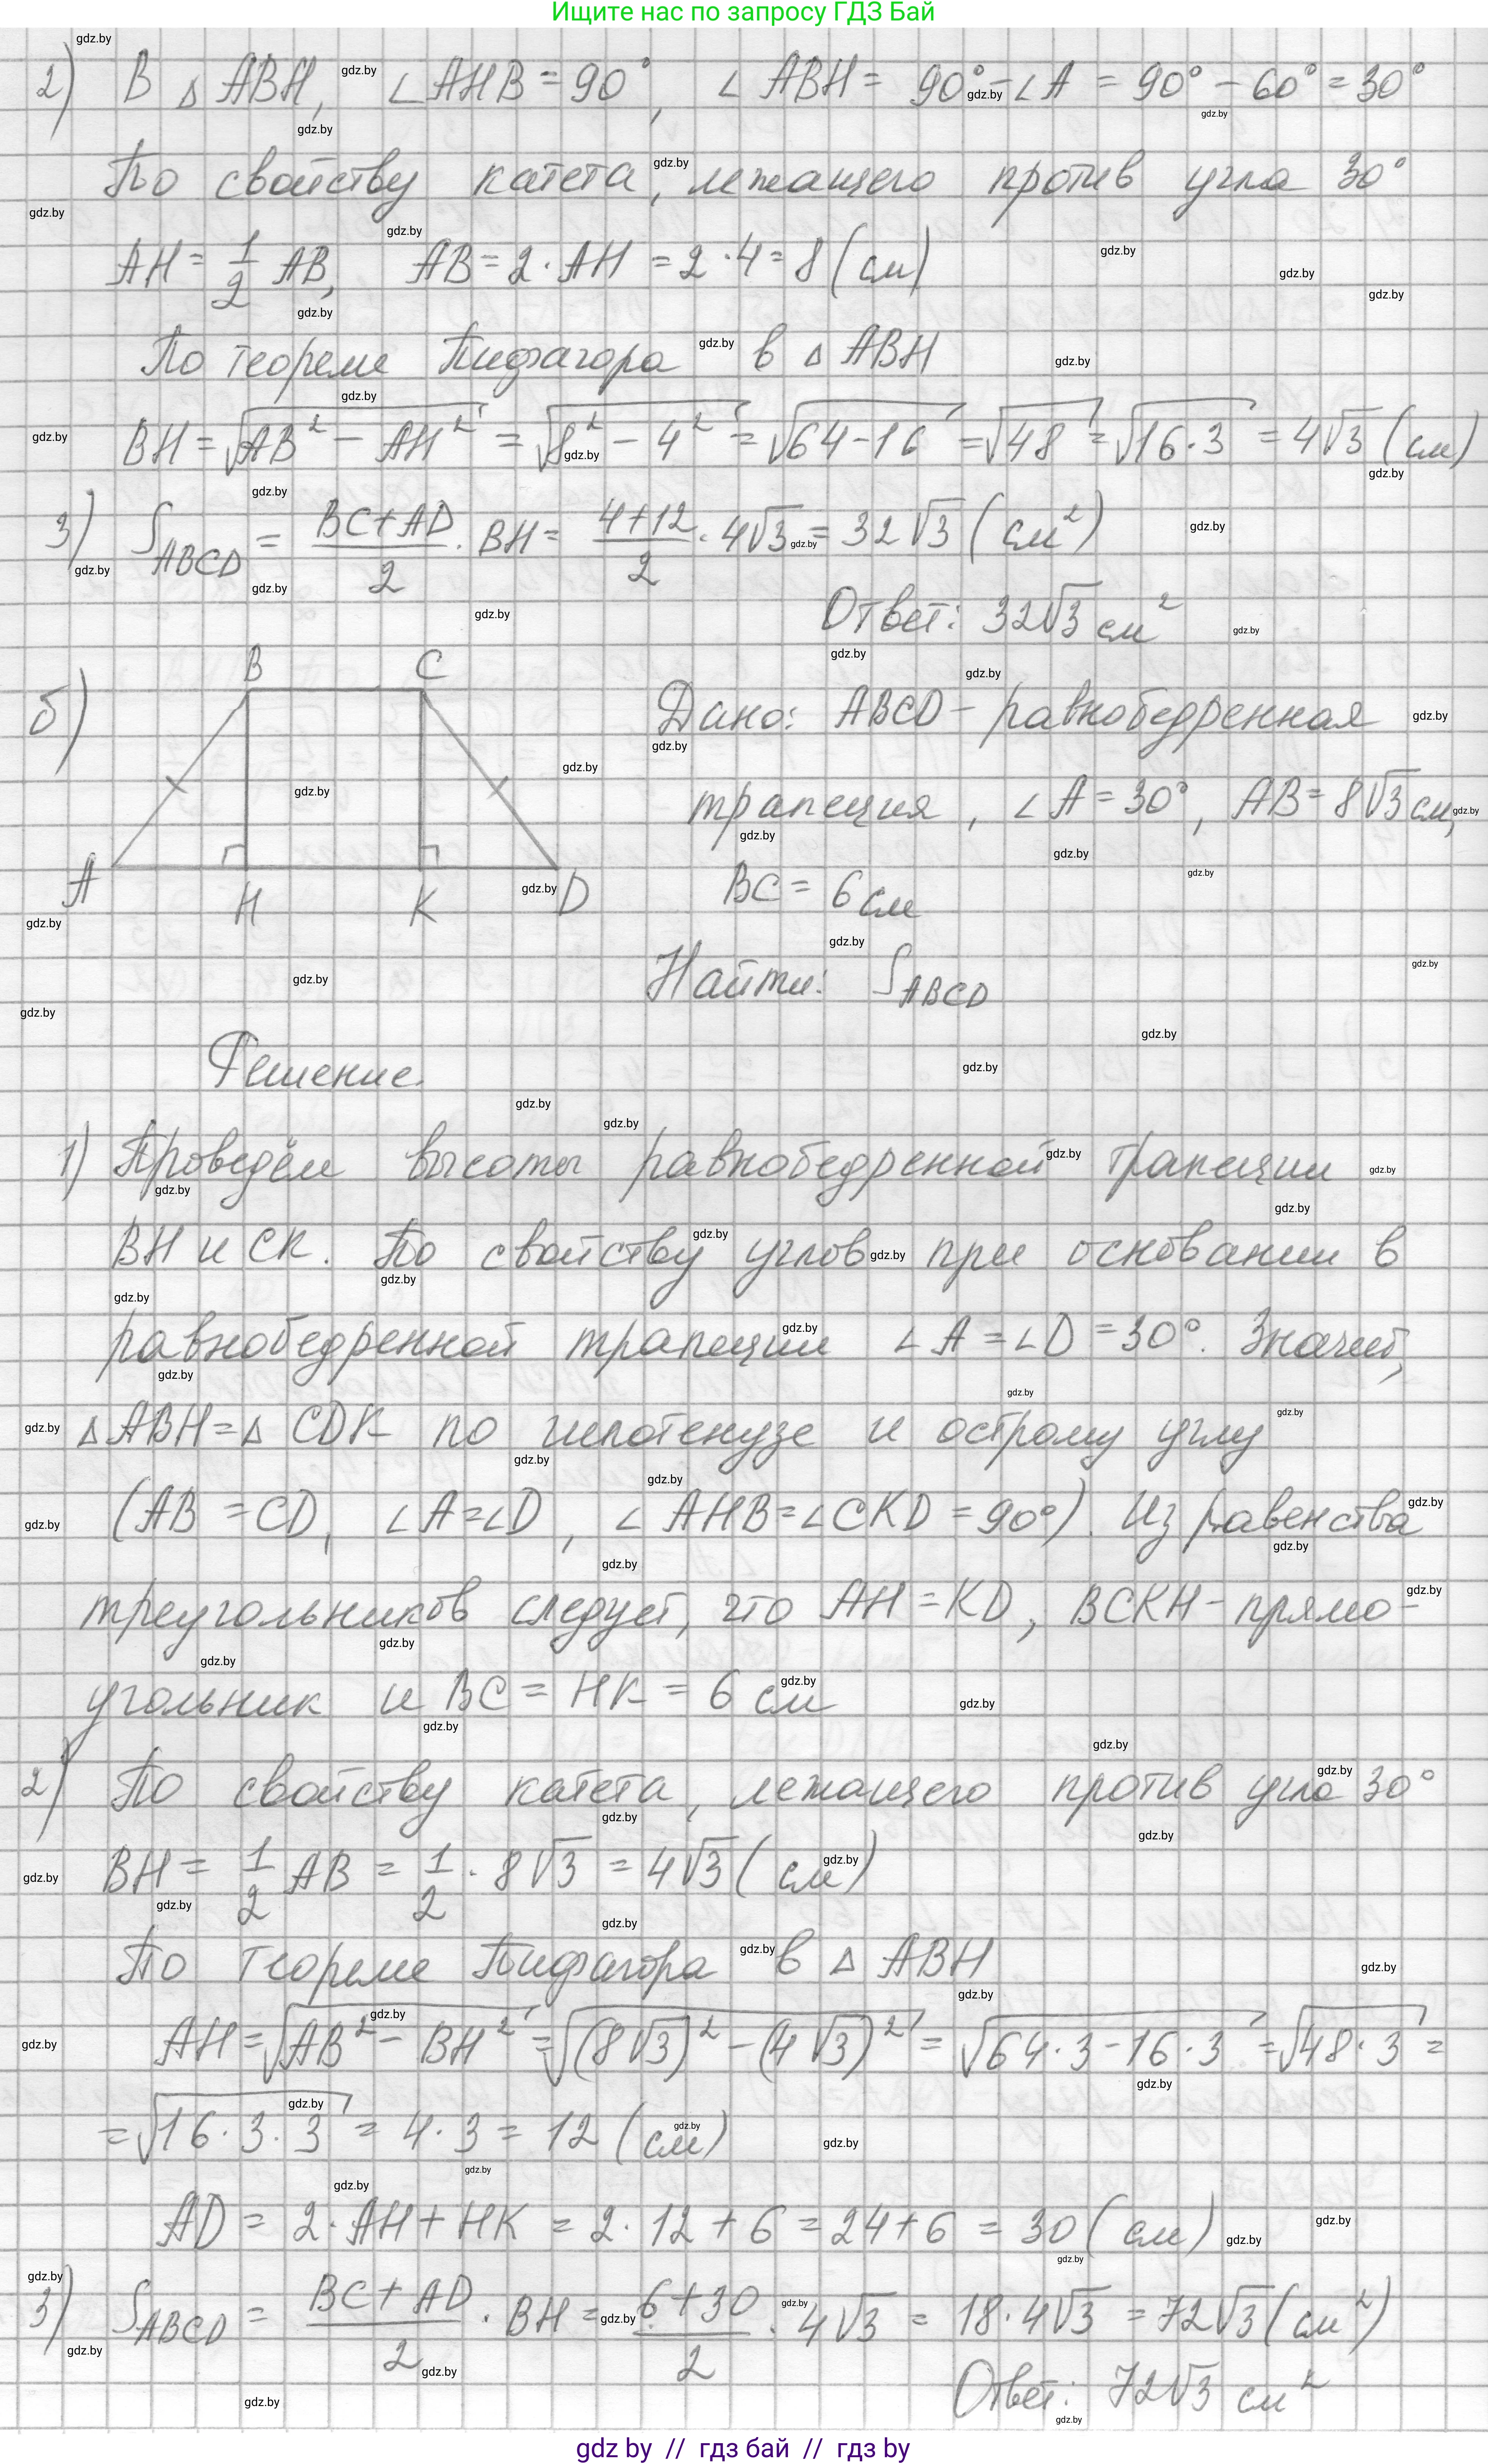 Ищите нас по запросу ГДЗ Бай
2) В △ ABH, ∠AHB = 90°, ∠ABH = 90° - ∠A = 90° - 60° = 30°
По свойству катета, лежащего против угла 30°
AH = 1/2 AB, AB = 2 · AH = 2 · 4 = 8 (см)
По теореме Пифагора в △ ABH
BH = √(AB² - AH²) = √(8² - 4²) = √(64 - 16) = √48 = √(16 · 3) = 4√3 (см)
3) S_ABCD = (BC + AD)/2 · BH = (4 + 12)/2 · 4√3 = 32√3 (см²)
Ответ: 32√3 см²
б)
B C
A H K D
Дано: ABCD - равнобедренная
трапеция, ∠A = 30°, AB = 8√3 см,
BC = 6 см
Найти: S_ABCD
Решение.
1) Проведём высоты равнобедренной трапеции
BH и CK. По свойству углов при основании в
равнобедренной трапеции ∠A = ∠D = 30°. Значит,
△ABH = △ CDK по гипотенузе и острому углу
(AB = CD, ∠A = ∠D, ∠AHB = ∠CKD = 90°). Из равенства
треугольников следует, что AH = KD, BCKH - прямо-
угольник и BC = HK = 6 см
2) По свойству катета, лежащего против угла 30°
BH = 1/2 AB = 1/2 · 8√3 = 4√3 (см)
По теореме Пифагора в △ ABH
AH = √(AB² - BH²) = √((8√3)² - (4√3)²) = √(64 · 3 - 16 · 3) = √(48 · 3) =
= √(16 · 3 · 3) = 4 · 3 = 12 (см)
AD = 2 · AH + HK = 2 · 12 + 6 = 24 + 6 = 30 (см)
3) S_ABCD = (BC + AD)/2 · BH = (6 + 30)/2 · 4√3 = 18 · 4√3 = 72√3 (см²)
Ответ: 72√3 см²
gdz by // гдз бай // гдз by